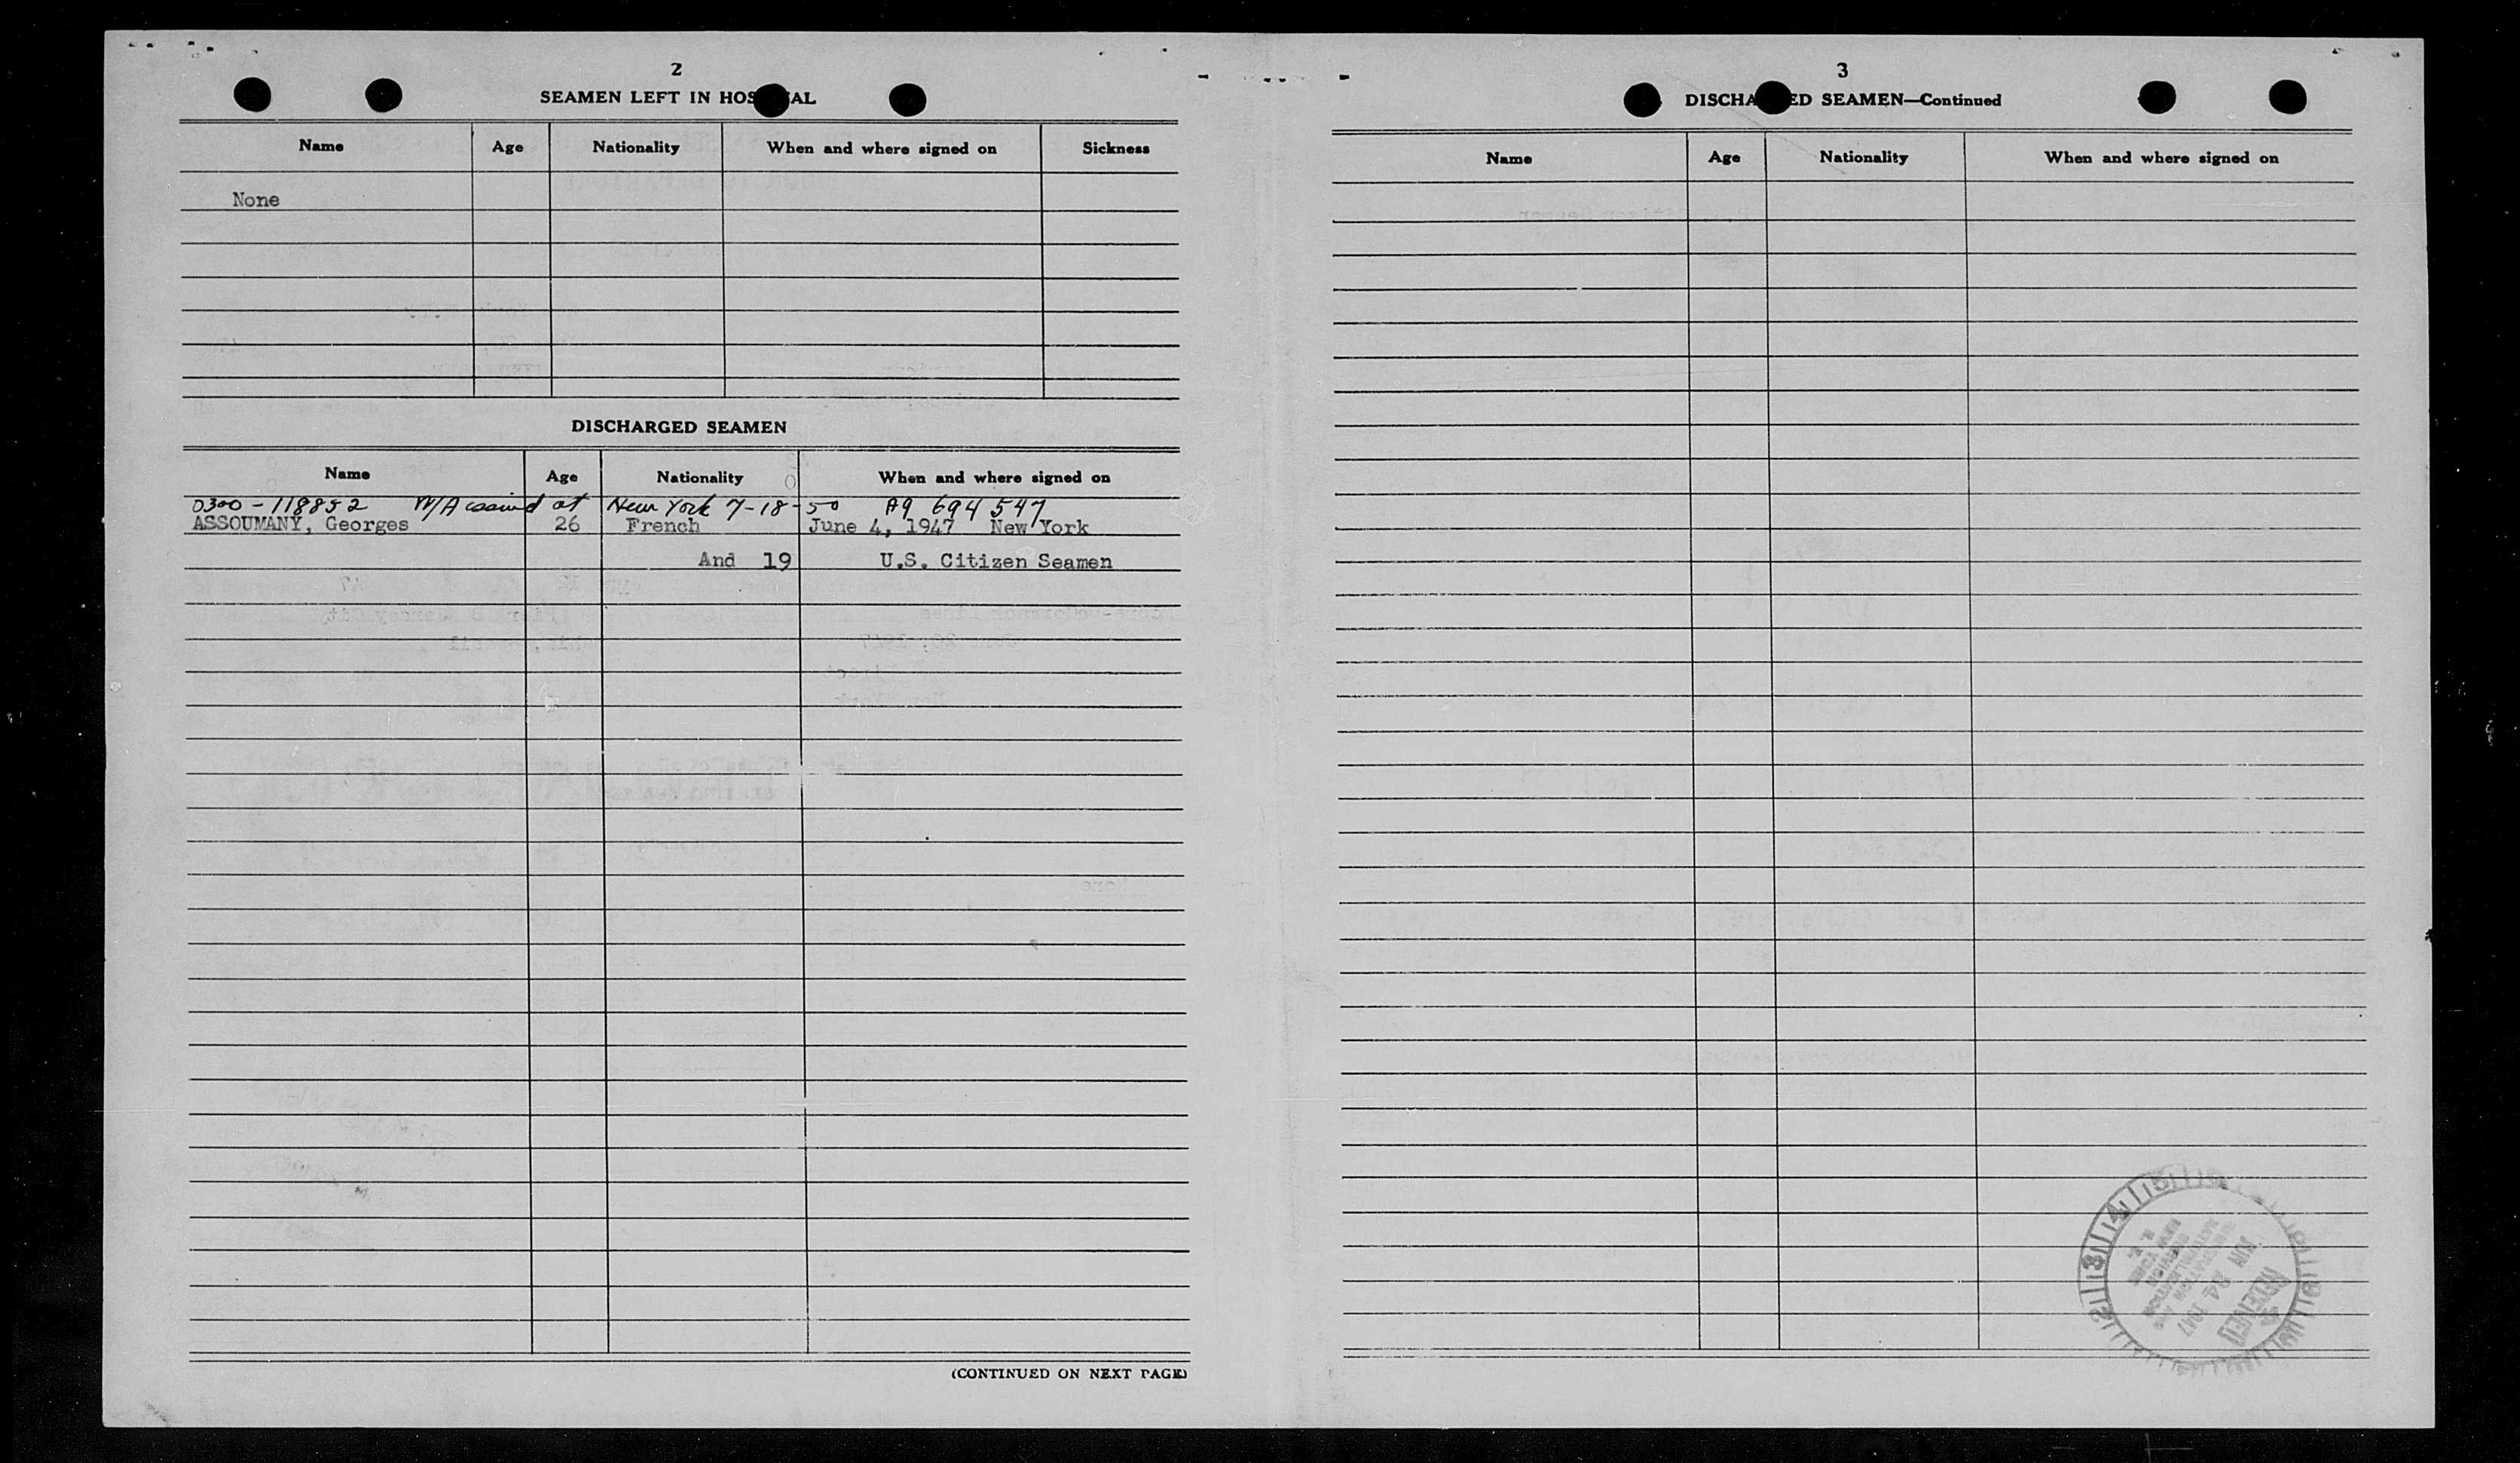 2
SEAMEN LEFT IN HOS AL
Name Age Nationality When and where signed on Sickness
None
DISCHARGED SEAMEN
Name Age Nationality When and where signed on
0300-118852 W/A at New York 7-18-50 A9 694 547
ASSOUMANY, Georges 26 French June 4, 1947 New York
And 19 U.S. Citizen Seamen
(CONTINUED ON NEXT PAGE)
3
DISCHA ED SEAMEN—Continued
Name Age Nationality When and where signed on
RECEIVED
JUN 24 1947
IMMIGRATION AND
NATURALIZATION